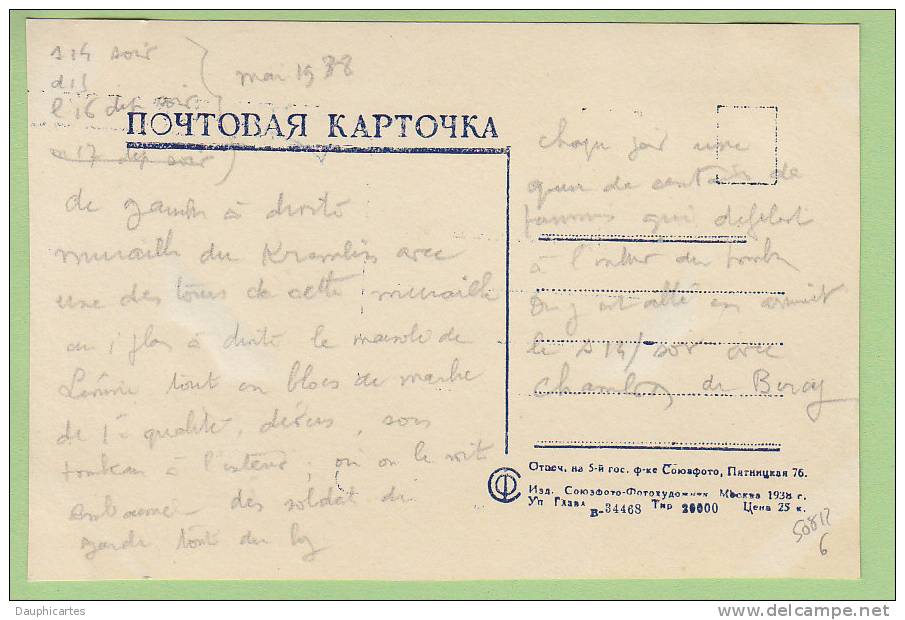 s 14 soir
d 15
l 16 dep soir
mai 1938
s 17 dep soir
ПОЧТОВАЯ КАРТОЧКА
de gauche à droite
muraille du Kremlin avec
une des tours de cette muraille
au 1 plan à droite le mausolé de
Lénine tout en blocs de marbre
de 1e qualité, dessus, son
tombeau à l'interieur; où on le voit
embaumé des soldat de
garde tout du
chaque jour une
queue de centaines de
qui defilent
à l'interieur du tombeau
On y est allé en arrivant
le s 14/ soir avec
de Bercy
Отпеч. на 5-й гос. ф-ке Союзфото, Пятницкая 76.
Изд. Союзфото-Фотохудожник Москва 1938 г.
Уп Глава В-34468 Тир 20000 Цена 25 к.
50812
6
Dauphicartes
www.delcampe.net